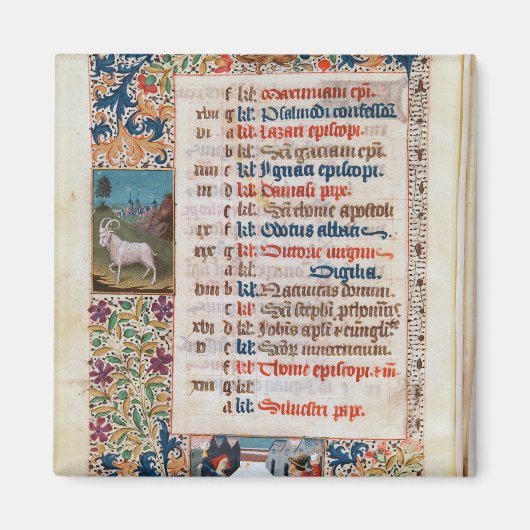 f kl. Maximiani epi.
xviii g kl. Psalmodi confessor
vii a kl. Lazari episcopi.
b kl. Sci graciani epi.
xv c kl. Ignaci episcopi.
iiii d kl. Damasi pape.
e kl. Sci thome apostoli
xii f kl. Odotus abbatis
i g kl. Victorie virginis
a kl. Vigilia.
b kl. Nativitas domini.
kl. Sci stephani
xvii d kl. Johis apli et euvangliste
vi e kl. Scorum innocencium.
f kl. Thome episcopi et m
xiiii g kl.
a kl. Silvestri pape.